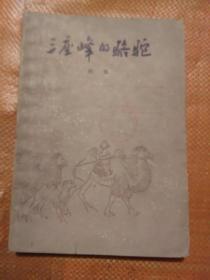 三座峰的骆驼